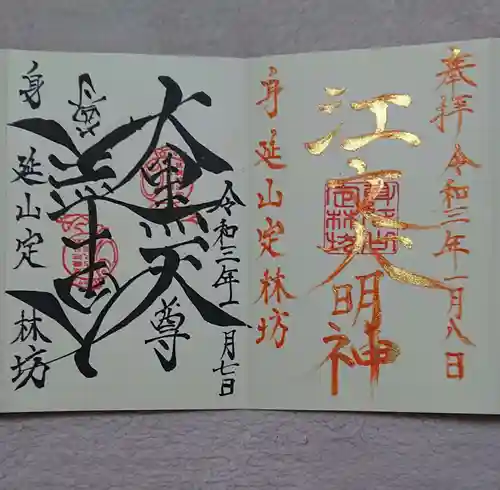 奉拝 令和三年一月八日
明神
身延山定林坊
令和三年一月七日
大黒天尊
大黒天尊
身延山定林坊